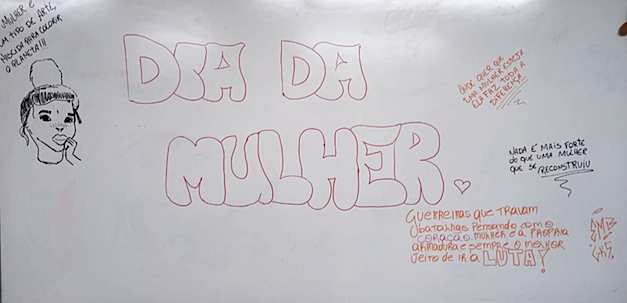 MULHER É
UM TIPO DE ARTE,
NASCIDA PARA COLORIR
O PLANETA!!!
DIA DA
MULHER.
ONDE QUER QUE
UMA MULHER ESTEJA
ELA FAZ TODA A
DIFERENÇA
NADA É MAIS FORTE
do QUE UMA MULHER
QUE SE RECONSTRUIU
GUERREIRAS QUE TRAVAM
batalhas PENSANDO COM O
CORAÇÃO. MULHER É A PRÓPRIA
ARMADURA E SEMPRE O MELHOR
JEITO DE IR À LUTA!